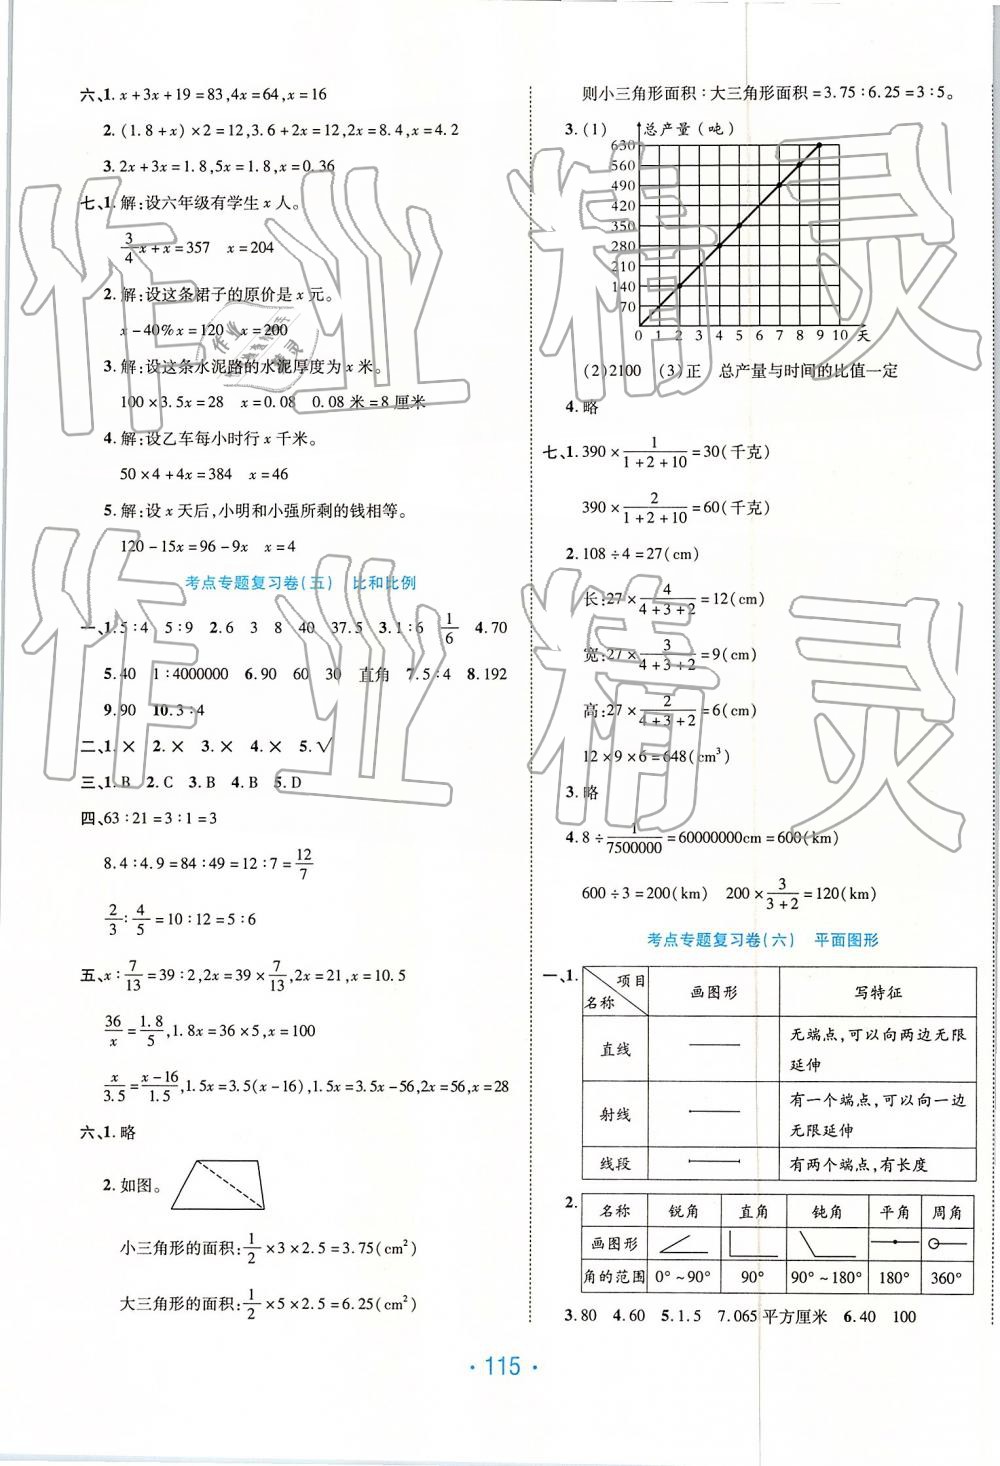 六、1. x+3x+19=83,4x=64,x=16
2. (1.8+x)×2=12,3.6+2x=12,2x=8.4,x=4.2
3. 2x+3x=1.8,5x=1.8,x=0.36
七、1. 解:设六年级有学生 x 人。
3/4x+x=357 x=204
2. 解:设这条裙子的原价是 x 元。
x-40%x=120 x=200
3. 解:设这条水泥路的水泥厚度为 x 米。
100×3.5x=28 x=0.08 0.08 米=8 厘米
4. 解:设乙车每小时行 x 千米。
50×4+4x=384 x=46
5. 解:设 x 天后,小明和小强所剩的钱相等。
120-15x=96-9x x=4
考点专题复习卷(五) 比和比例
一、1. 5∶4 5∶9 2. 6 3 8 40 37.5 3. 1∶6 1/6 4. 70
5. 40 1∶4000000 6. 90 60 30 直角 7. 5∶4 8. 192
9. 90 10. 3∶4
二、1. × 2. × 3. × 4. × 5. √
三、1. B 2. C 3. B 4. B 5. D
四、63∶21=3∶1=3
8.4∶4.9=84∶49=12∶7=12/7
2/3∶4/5=10∶12=5∶6
五、x∶7/13=39∶2,2x=39×7/13,2x=21,x=10.5
36/x=1.8/5,1.8x=36×5,x=100
x/3.5=x-16/1.5,1.5x=3.5(x-16),1.5x=3.5x-56,2x=56,x=28
六、1. 略
2. 如图。
小三角形的面积:1/2×3×2.5=3.75(cm²)
大三角形的面积:1/2×5×2.5=6.25(cm²)
则小三角形面积∶大三角形面积=3.75∶6.25=3∶5。
3. (1) 总产量(吨)
630
560
490
420
350
280
210
140
70
0 1 2 3 4 5 6 7 8 9 10 天
(2)2100 (3)正 总产量与时间的比值一定
4. 略
七、1. 390×1/1+2+10=30(千克)
390×2/1+2+10=60(千克)
2. 108÷4=27(cm)
长:27×4/4+3+2=12(cm)
宽:27×3/4+3+2=9(cm)
高:27×2/4+3+2=6(cm)
12×9×6=648(cm³)
3. 略
4. 8÷1/7500000=60000000cm=600(km)
600÷3=200(km) 200×3/3+2=120(km)
考点专题复习卷(六) 平面图形
一、1. 项目 名称 画图形 写特征
直线 无端点,可以向两边无限
延伸
射线 有一个端点,可以向一边
无限延伸
线段 有两个端点,有长度
2. 名称 锐角 直角 钝角 平角 周角
画图形
角的范围 0°~90° 90° 90°~180° 180° 360°
3. 80 4. 60 5. 1.5 7.065 平方厘米 6. 40 100
· 115 ·
作业精灵
作业精灵